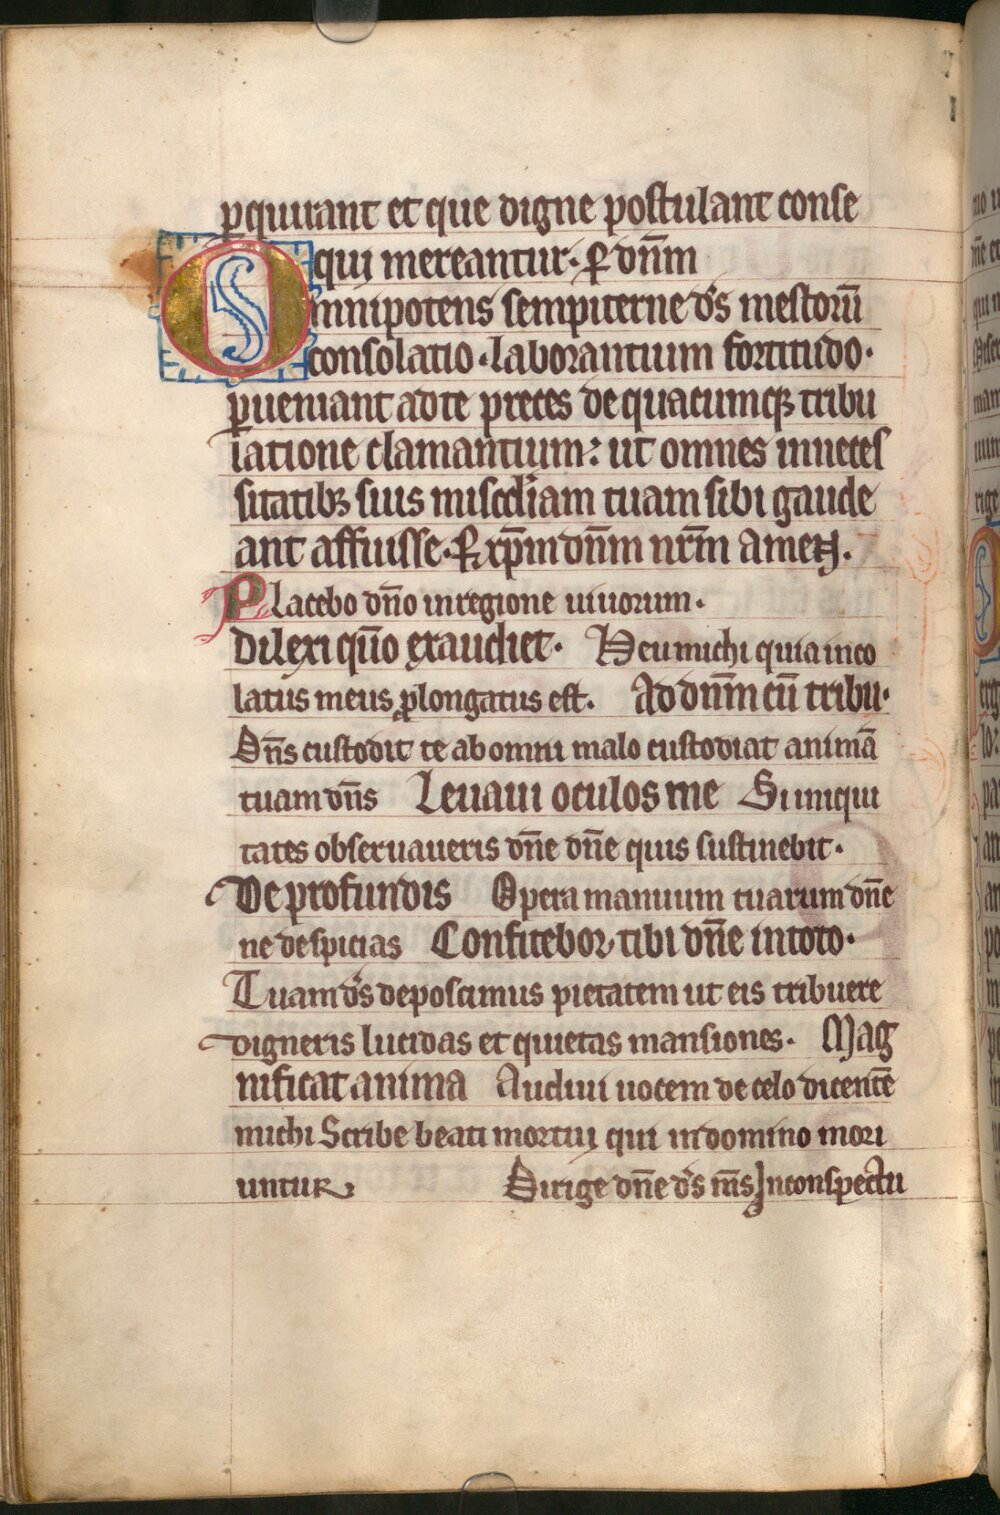 ꝑquirant et que digne postulant conse
qui mereantur. ꝑ dn̄m
Omnipotens sempiterne ds̄ mestorū
consolatio. laborantium fortitudo.
ꝑueniant adte preces de quacumqꝫ tribu
latione clamantium: ut omnes inneces
sitatibꝫ suis mis̄cdiam tuam sibi gaude
ant affuisse. ꝑ xp̄m dn̄m nr̄m amen.
Placebo dn̄o in regione uiuorum.
Dilexi qm̄o exaudiet. Heu michi quia inco
latus meus ꝓlongatus est. Ad dn̄m cū tribu.
Dn̄s custodit te ab omni malo custodiat animā
tuam dn̄s Leuaui oculos me Si iniqui
tates obseruaueris dn̄e dn̄e quis sustinebit.
De profundis Opera manuum tuarum dn̄e
ne despicias Confitebor tibi dn̄e in toto.
Tuam ds̄ deposcimus pietatem ut eis tribuere
digneris lucidas et quietas mansiones. Mag
nificat anima Audiui uocem de celo dicentē
michi Scribe beati mortui qui in domino mori
untur Dirige dn̄e ds̄ ms̄ In conspectu